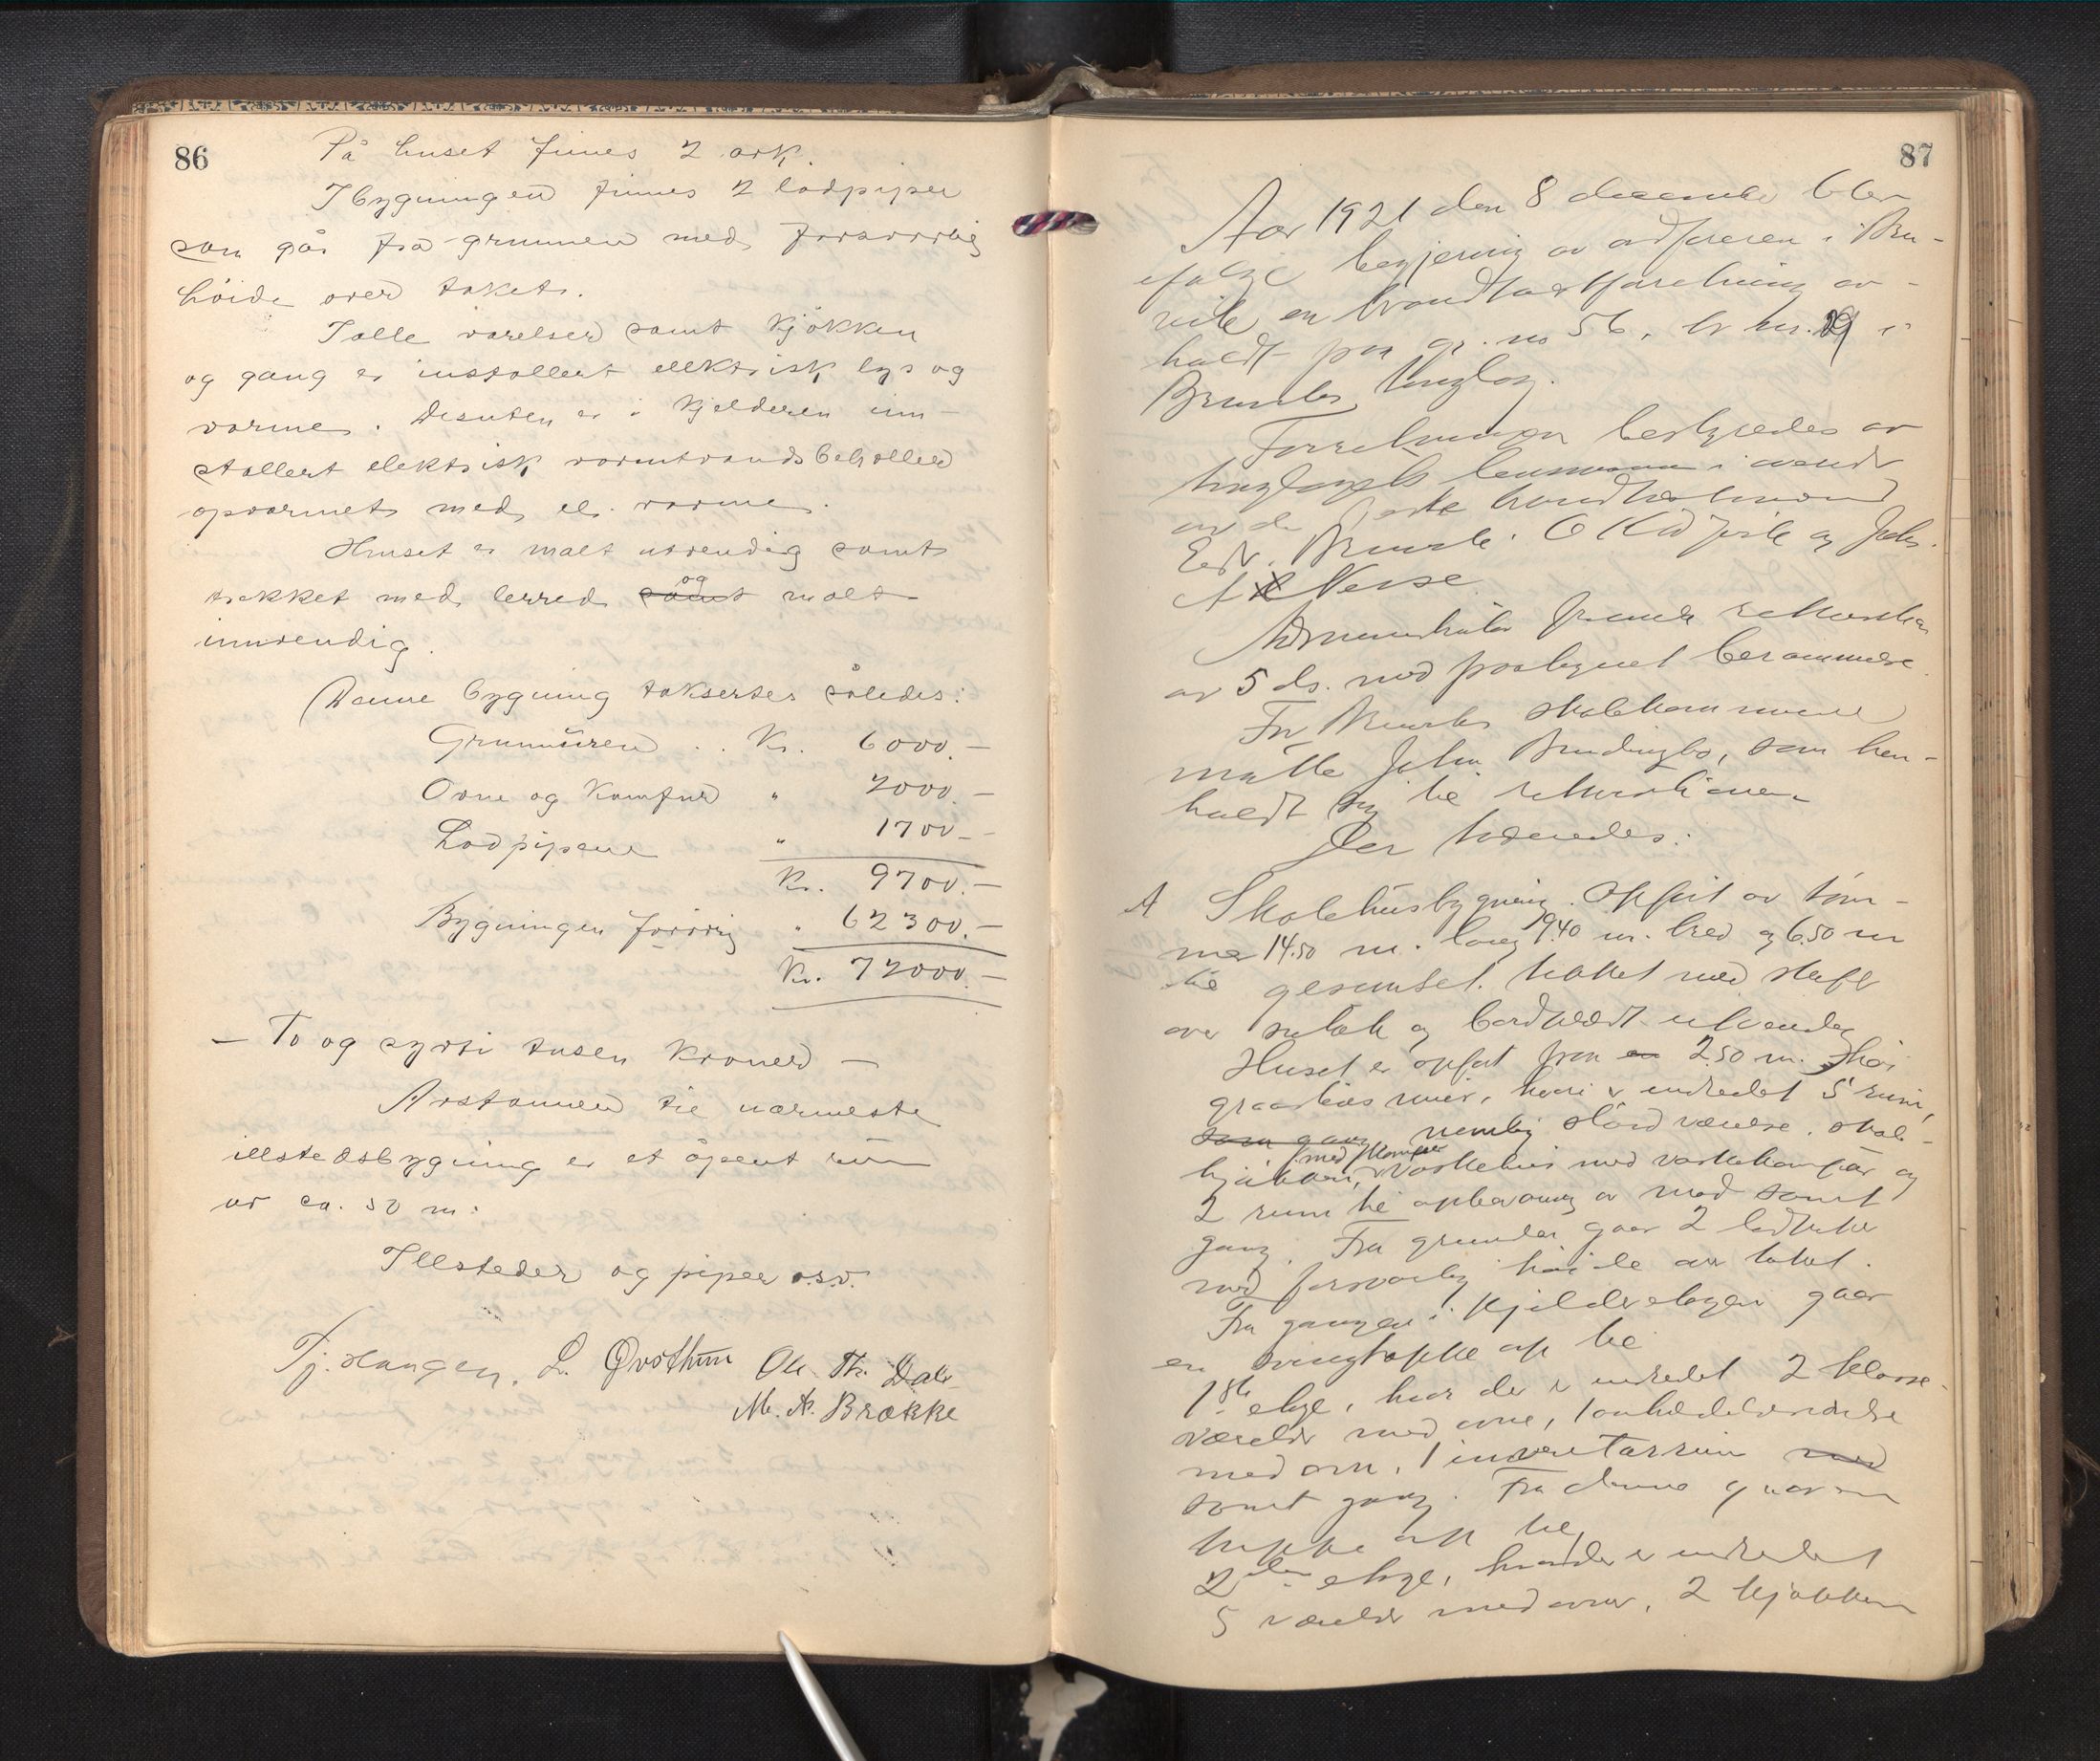 86
På huset finnes 2 ark.
I bygningen finnes 2 lodpiper
som går fra grunnen med forsvarlig
höide over taket.
I alle værelser samt kjökken
og gang er installert elektrisk lys og
varme. Desuten er i kjelderen inn-
stallert elektrisk varmtvandsbeholder
opvarmet med el. varme.
Huset er malt utvendig samt
trekket med lerred samt og malt
innvendig.
Denne bygning takseres således:
Grunmuren . . Kr. 6000.-
Ovne og komfur " 2000.-
Lodpipene " 1700.-
Kr. 9700.-
Bygningen forövrig " 62300.-
Kr. 72000.-
- To og sytti tusen kroner -
Avstannen til nærmeste
illstedsbygning er et åpent rum
av ca. 50 m.
Illsteder og piper o.s.v.
Tj. Haugen. L. Øvsthun Ole Th. Dale
M. A. Brække
87
Aar 1921 den 8 december blev
ifölge begjering av ordföreren i Bru-
vik en brandtakstforretning av-
holdt paa gr. no 56, br. nr. 29 i
Bruviks tinglag.
Forretningen bestyredes av
tinglagets lensmann i
av de faste brandtakstmænd
Edv. Bruvik. O. K.
A. Neise
Administrator fremla rekvisition
av 5 ds. med paategnet berammelse.
For Bruviks skolekommune
mötte John som hen-
holdt sig til rekvisitionen
Der
A Skolehusbygning. Opfört av töm-
mer 14.50 m. lang 9.40 m. bred og 6.50 m
til gesimset. tækket med skifer
over sutak og bordklædt utvendig
Huset er opfört paa en 2.50 m. höi
graastens mur, hvori er indredet 5 rum,
som gang nemlig slöid værelse, skole-
kjökken, med komfur vaskehus med vaskekomfur og
2 rum til opbevaring av ved samt
gang. Fra grunden gaar 2
med forsvarlig höide over taket.
Fra gangen i kjelderetagen gaar
en svingtrappe op til
1ste etage, hvor der er indredet 2 klasse-
værelser med ovne, 1
med ovn, 1 inventarrum med
samt gang. Fra denne gaar en
trappe op til
2den etage, hvor der er indredet
5 værelser med ovner, 2 kjökken